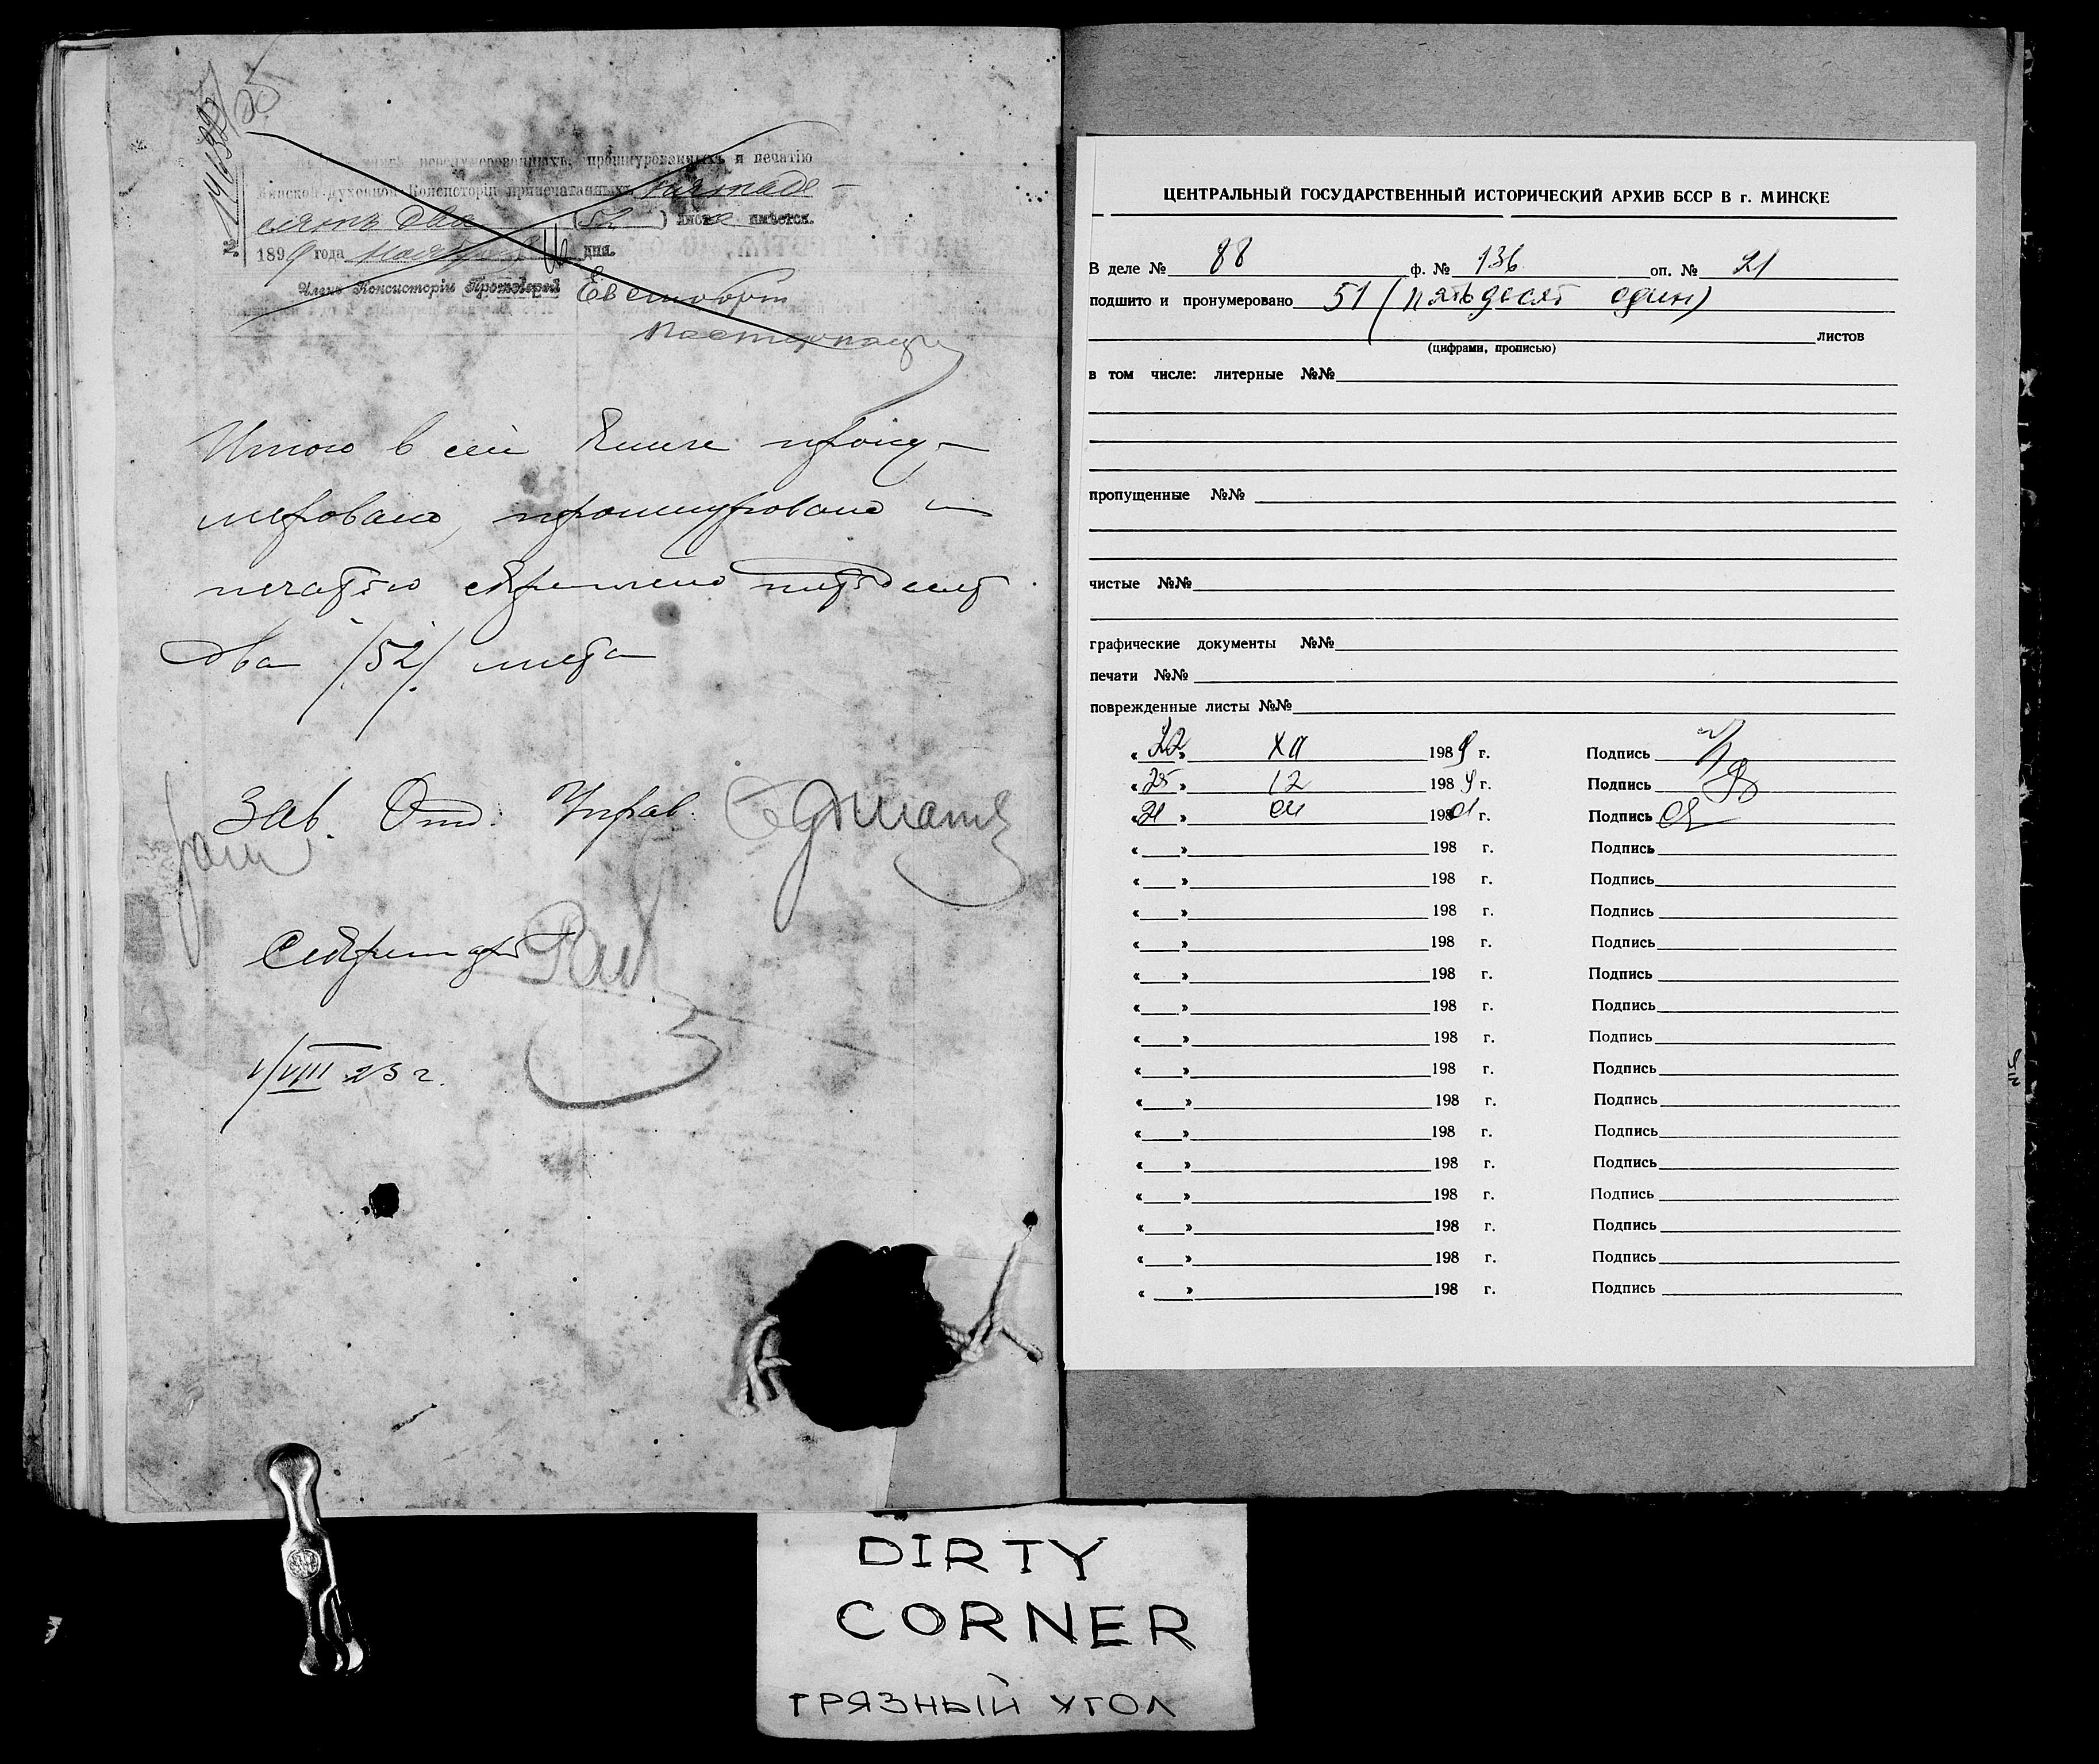 книгѣ перенумерованныхъ, прошнурованныхъ и печатію
Минской Духовной Консисторіи припечатанныхъ пятьде-
сятъ два (52) листа имѣется.
1899 года Ноября 16 дня.
Членъ Консисторіи Протоіерей
Итого в сей книге прону-
меровано, прошнуровано и
печатью скреплено пятьдесят
два /52/ листа
Зав. Отд. Управ.
Секретарь
1/VIII 23 г.
ЦЕНТРАЛЬНЫЙ ГОСУДАРСТВЕННЫЙ ИСТОРИЧЕСКИЙ АРХИВ БССР В г. МИНСКЕ
В деле № 88 ф. № 136 оп. № 21
подшито и пронумеровано 51 (пятьдесят один)
листов
(цифрами, прописью)
в том числе: литерные №№
пропущенные №№
чистые №№
графические документы №№
печати №№
поврежденные листы №№
« 22 » XII 1989 г. Подпись
« 25 » 12 1989 г. Подпись
« 21 » 198 г. Подпись
« » 198 г. Подпись
« » 198 г. Подпись
« » 198 г. Подпись
« » 198 г. Подпись
« » 198 г. Подпись
« » 198 г. Подпись
« » 198 г. Подпись
« » 198 г. Подпись
« » 198 г. Подпись
« » 198 г. Подпись
« » 198 г. Подпись
« » 198 г. Подпись
« » 198 г. Подпись
« » 198 г. Подпись
« » 198 г. Подпись
DIRTY
CORNER
ГРЯЗНЫЙ УГОЛ